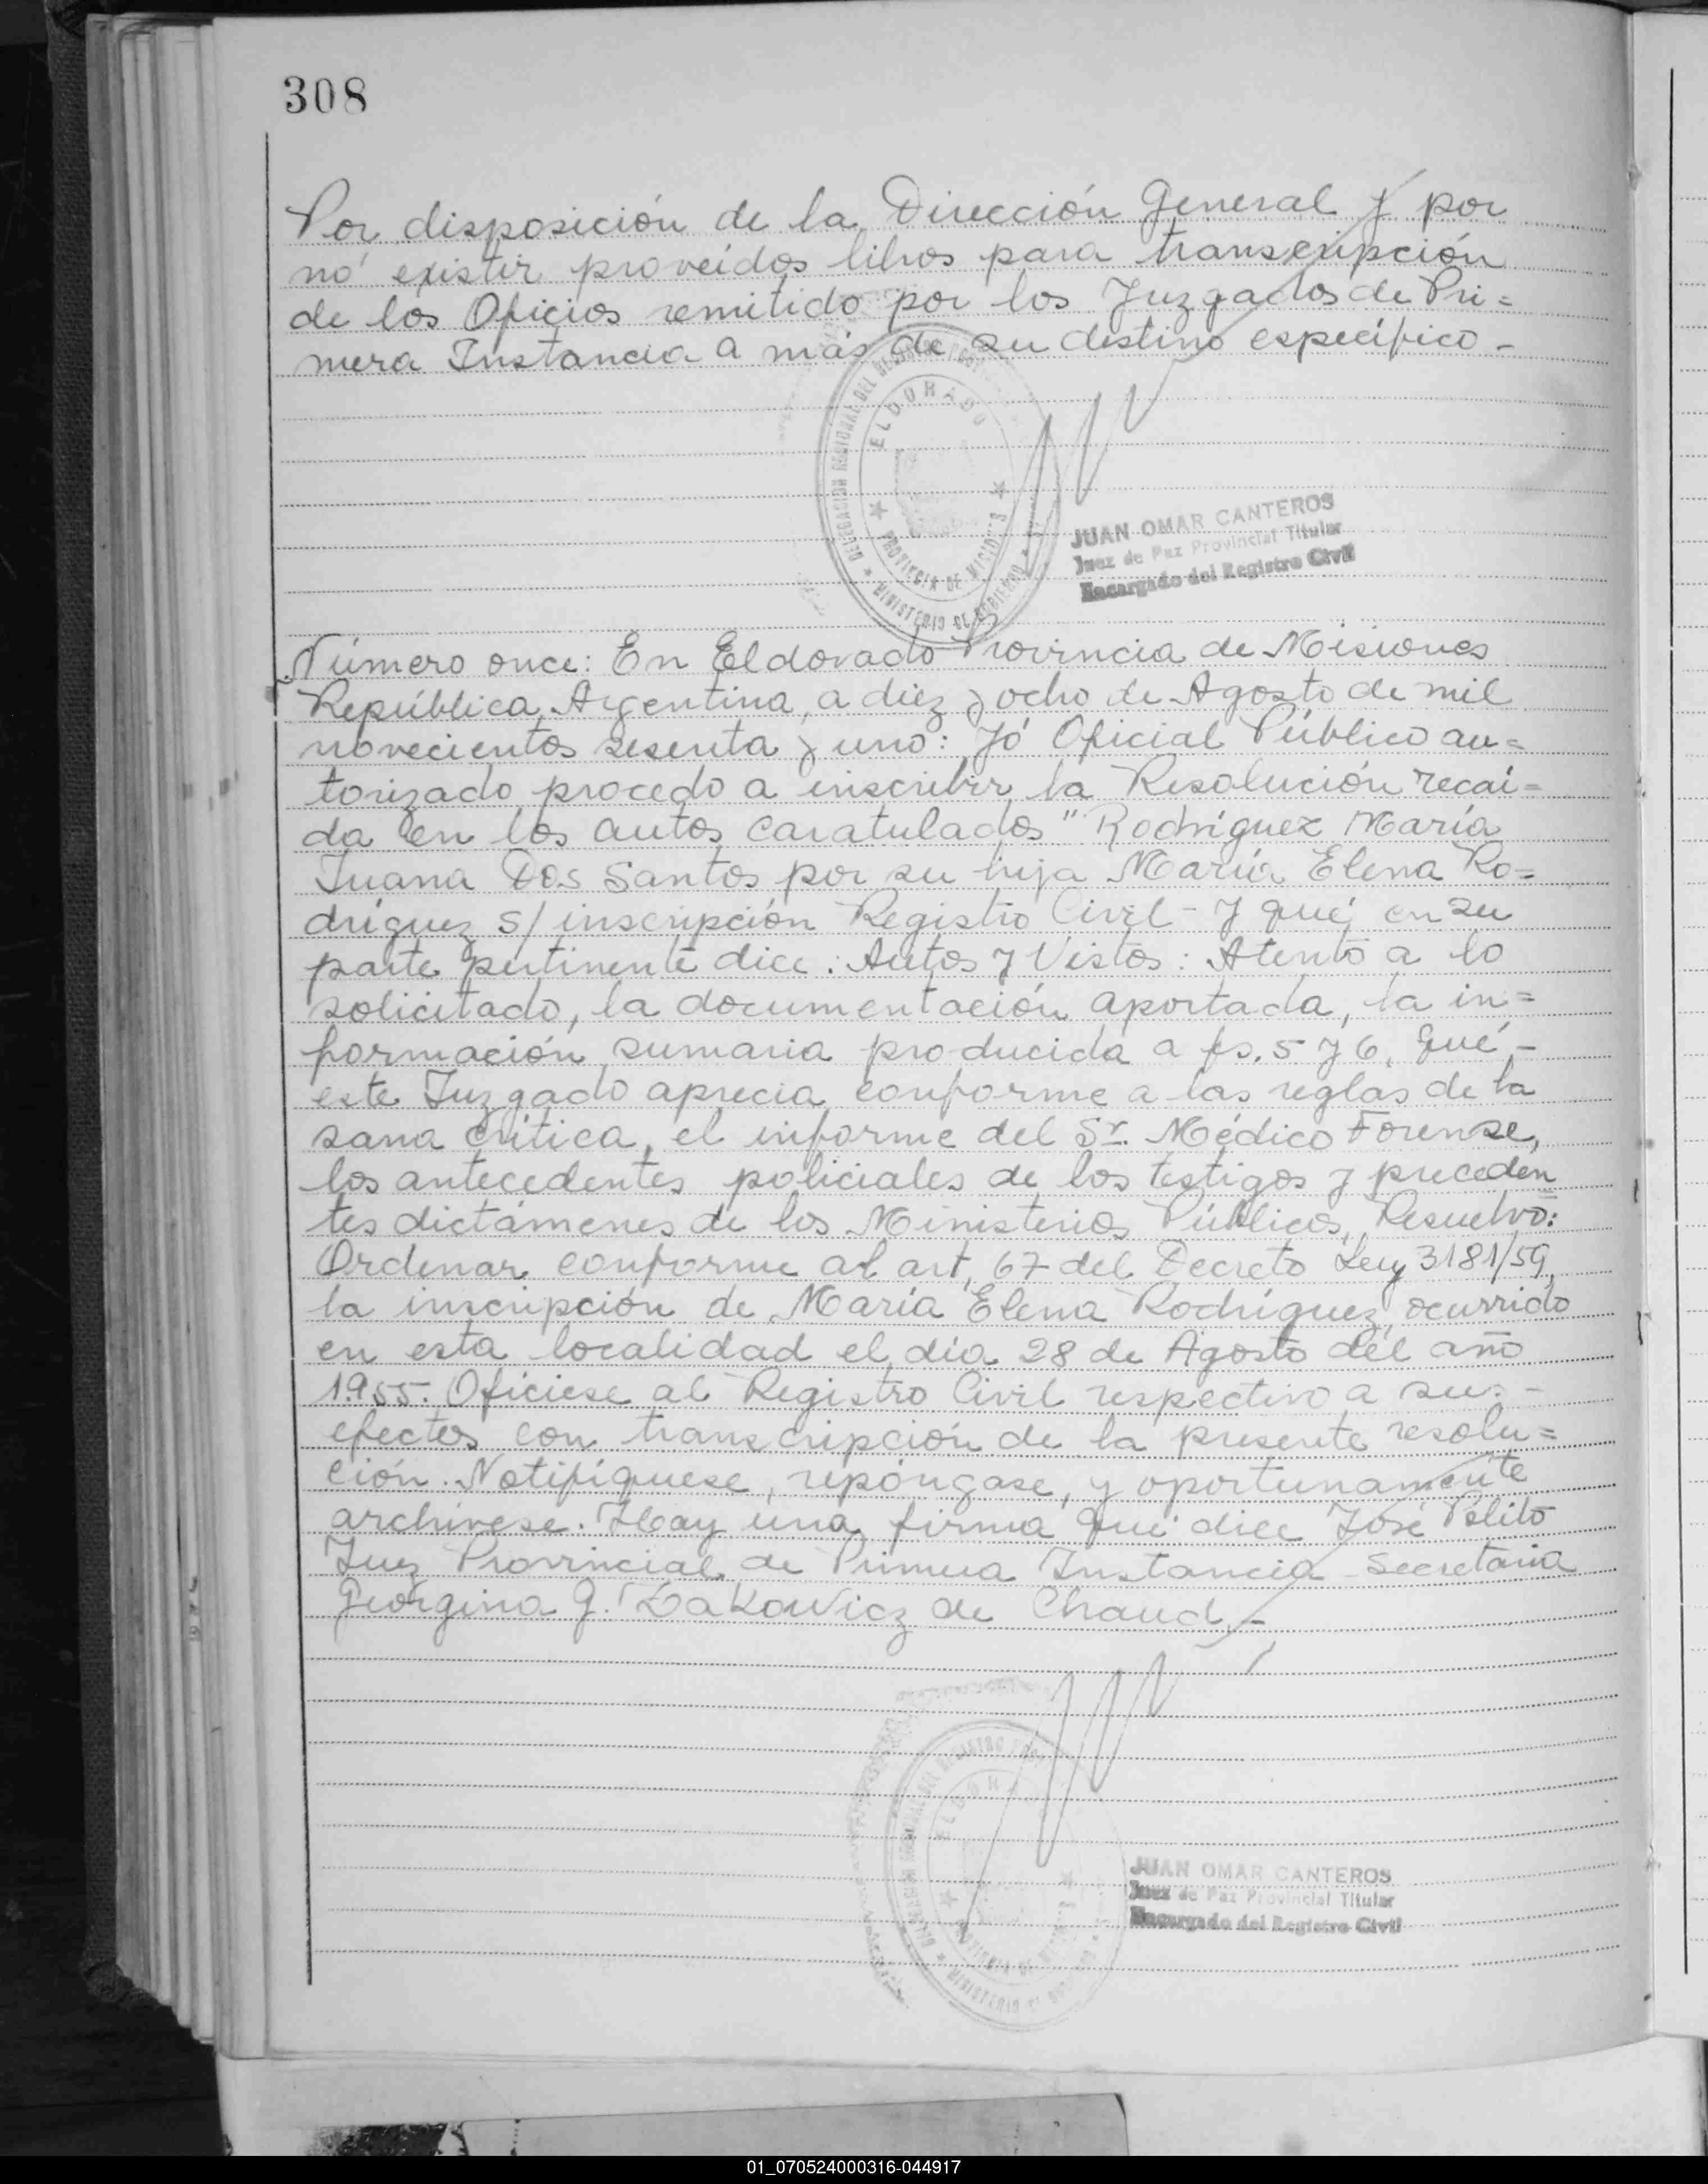 308
Por disposición de la Dirección General y por
nó existir proveídos libros para transcripción
de los Oficios remitido por los Juzgados de Pri=
mera Instancia a más de su destino específico -
DELEGACION REGIONAL DEL REGISTRO
ELDORADO
PROVINCIA DE MISIONES
MINISTERIO DE GOBIERNO
JUAN OMAR CANTEROS
Juez de Paz Provincial Titular
Encargado del Registro Civil
Número once: En Eldorado Provincia de Misiones
República Argentina, a diez y ocho de Agosto de mil
novecientos sesenta y uno: Yó Oficial Público au=
torizado procedo a inscribir la Resolución recaí=
da en los autos caratulados " Rodríguez María
Juana Dos Santos por su hija María Elena Ro=
dríguez S/ inscripción Registro Civil - y qué en su
parte pertinente dice: Autos y Vistos: Atento a lo
solicitado, la documentación aportada, la in=
formación sumaria producida a fs. 5 y 6, qué -
este Juzgado aprecia conforme a las reglas de la
sana crítica, el informe del Sr. Médico Forense,
los antecedentes policiales de los testigos y preceden
tes dictámenes de los Ministerios Públicos, Resuelvo:
Ordenar conforme al art. 67 del Decreto Ley 3181/59,
la inscripción de María Elena Rodríguez, ocurrido
en esta localidad el día 28 de Agosto del año
1955. Oficiese al Registro Civil respectivo a sus -
efectos con transcripción de la presente resolu=
ción. Notifíquese, repóngase, y oportunamente
archívese. Hay una firma qué dice José Pólito
Juez Provincial de Primera Instancia - Secretaria
Georgina G. Zakowicz de Chaud -
DELEGACION REGIONAL DEL REGISTRO
PROVINCIA DE
MINISTERIO
JUAN OMAR CANTEROS
Juez de Paz Provincial Titular
Encargado del Registro Civil
01_070524000316-044917